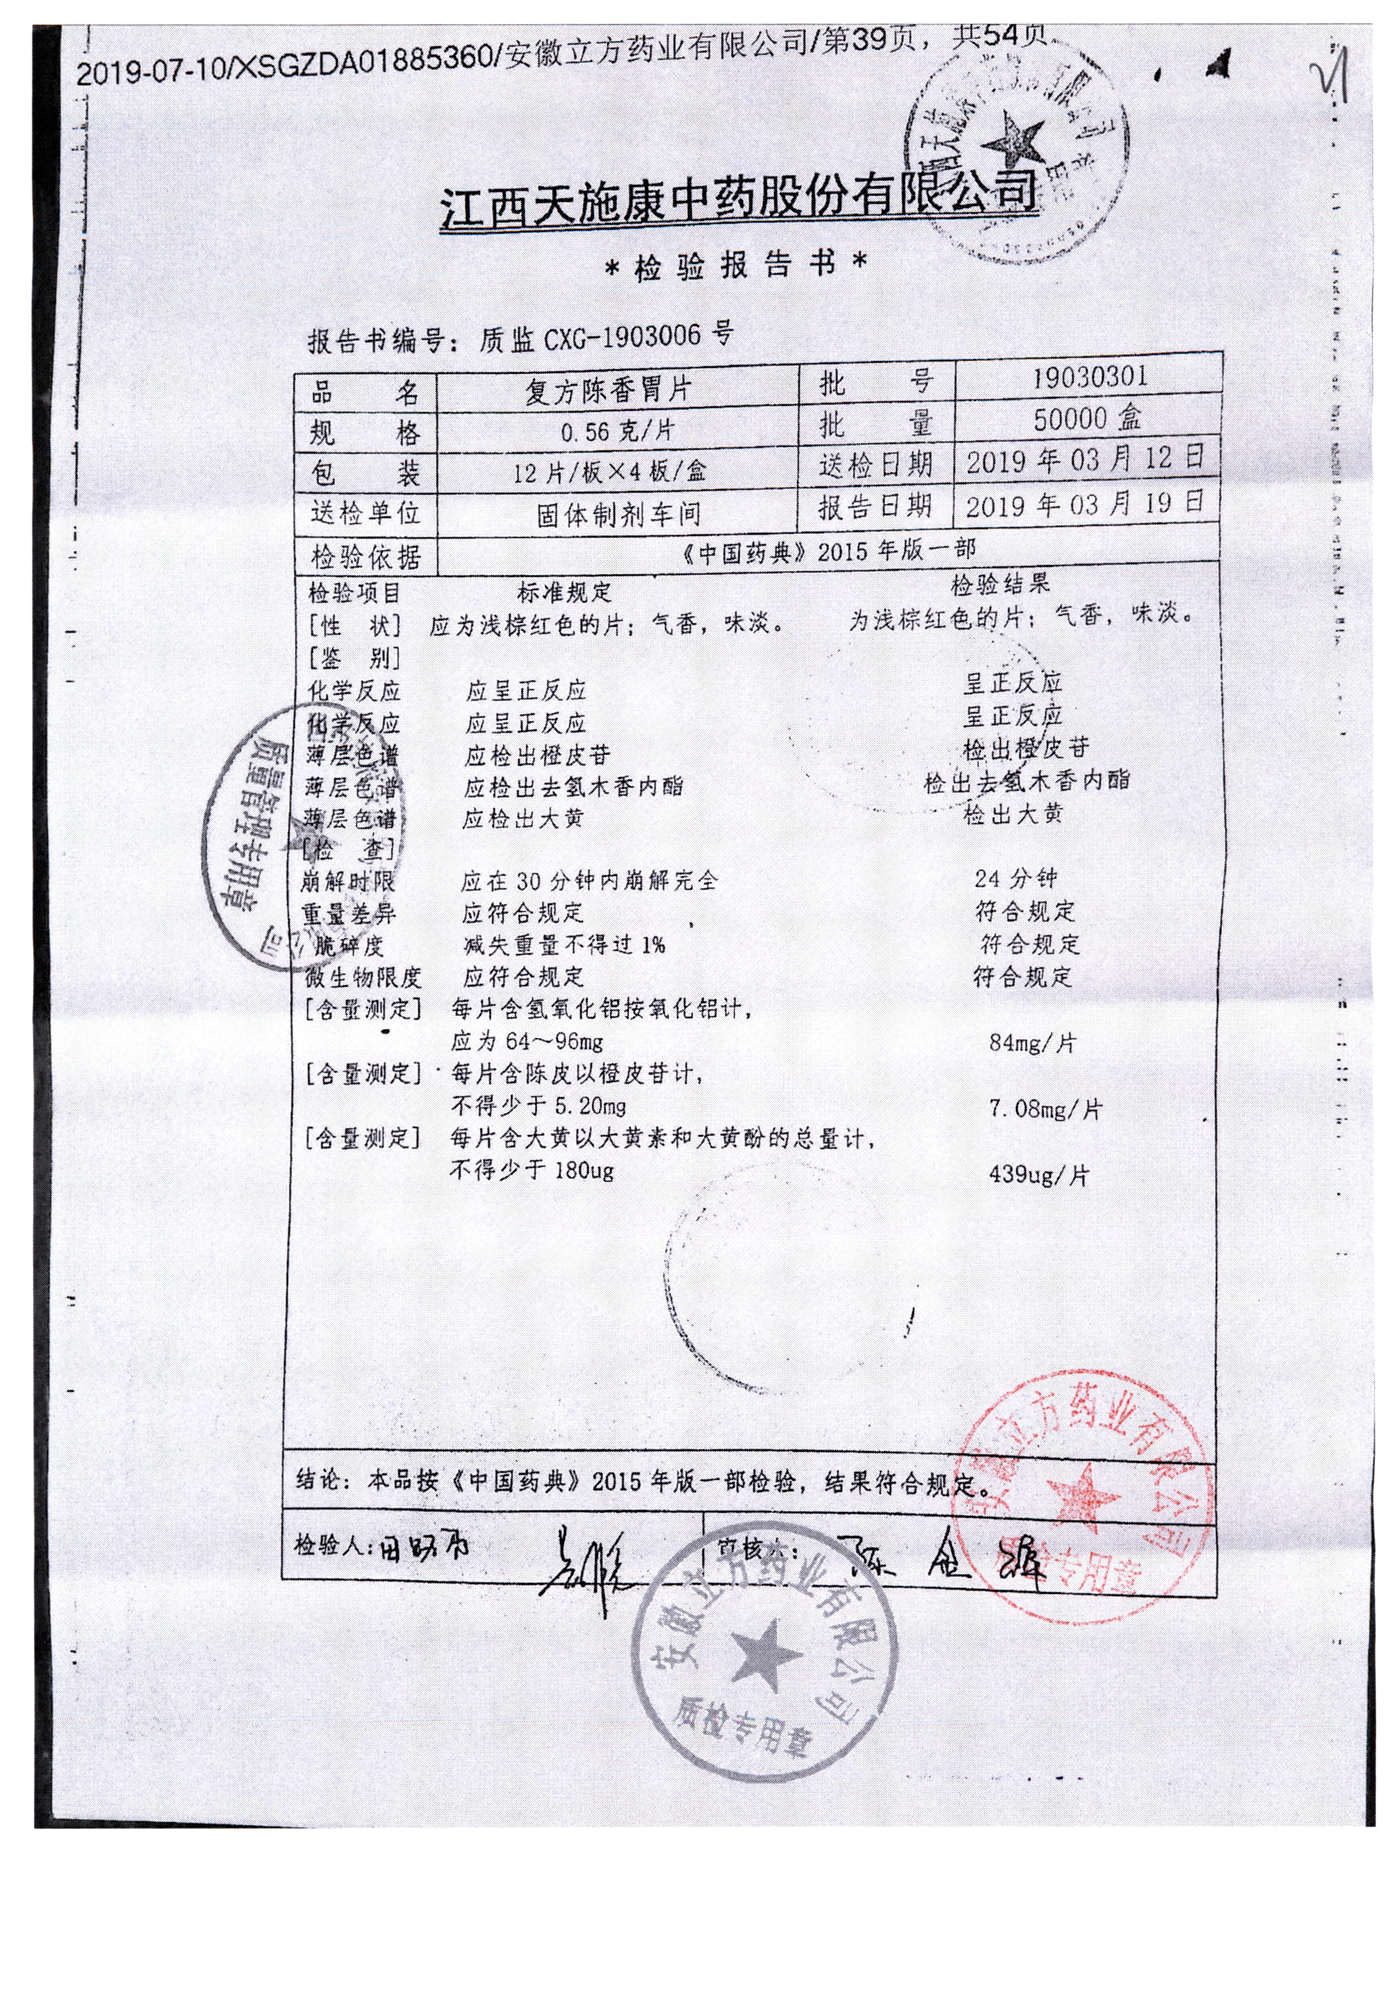 2019-07-10/XSGZDA01885360/安徽立方药业有限公司/第39页，共54页
江西天施康中药股份有限公司
*检验报告书*
报告书编号：质监 CXG-1903006 号
品 名 复方陈香胃片 批 号 19030301
规 格 0.56 克/片 批 量 50000 盒
包 装 12 片/板×4 板/盒 送检日期 2019 年 03 月 12 日
送检单位 固体制剂车间 报告日期 2019 年 03 月 19 日
检验依据 《中国药典》2015 年版一部
检验项目 标准规定 检验结果
[性 状] 应为浅棕红色的片；气香，味淡。 为浅棕红色的片；气香，味淡。
[鉴 别]
化学反应 应呈正反应 呈正反应
化学反应 应呈正反应 呈正反应
薄层色谱 应检出橙皮苷 检出橙皮苷
薄层色谱 应检出去氢木香内酯 检出去氢木香内酯
薄层色谱 应检出大黄 检出大黄
[检 查]
崩解时限 应在 30 分钟内崩解完全 24 分钟
重量差异 应符合规定 符合规定
脆碎度 减失重量不得过 1% 符合规定
微生物限度 应符合规定 符合规定
[含量测定] 每片含氢氧化铝按氧化铝计，
应为 64～96mg 84mg/片
[含量测定] 每片含陈皮以橙皮苷计，
不得少于 5.20mg 7.08mg/片
[含量测定] 每片含大黄以大黄素和大黄酚的总量计，
不得少于 180ug 439ug/片
质量管理专用章
结论：本品按《中国药典》2015 年版一部检验，结果符合规定。
检验人： 审核人：陈金
安徽立方药业有限公司
质检专用章
安徽立方药业有限公司
质检专用章